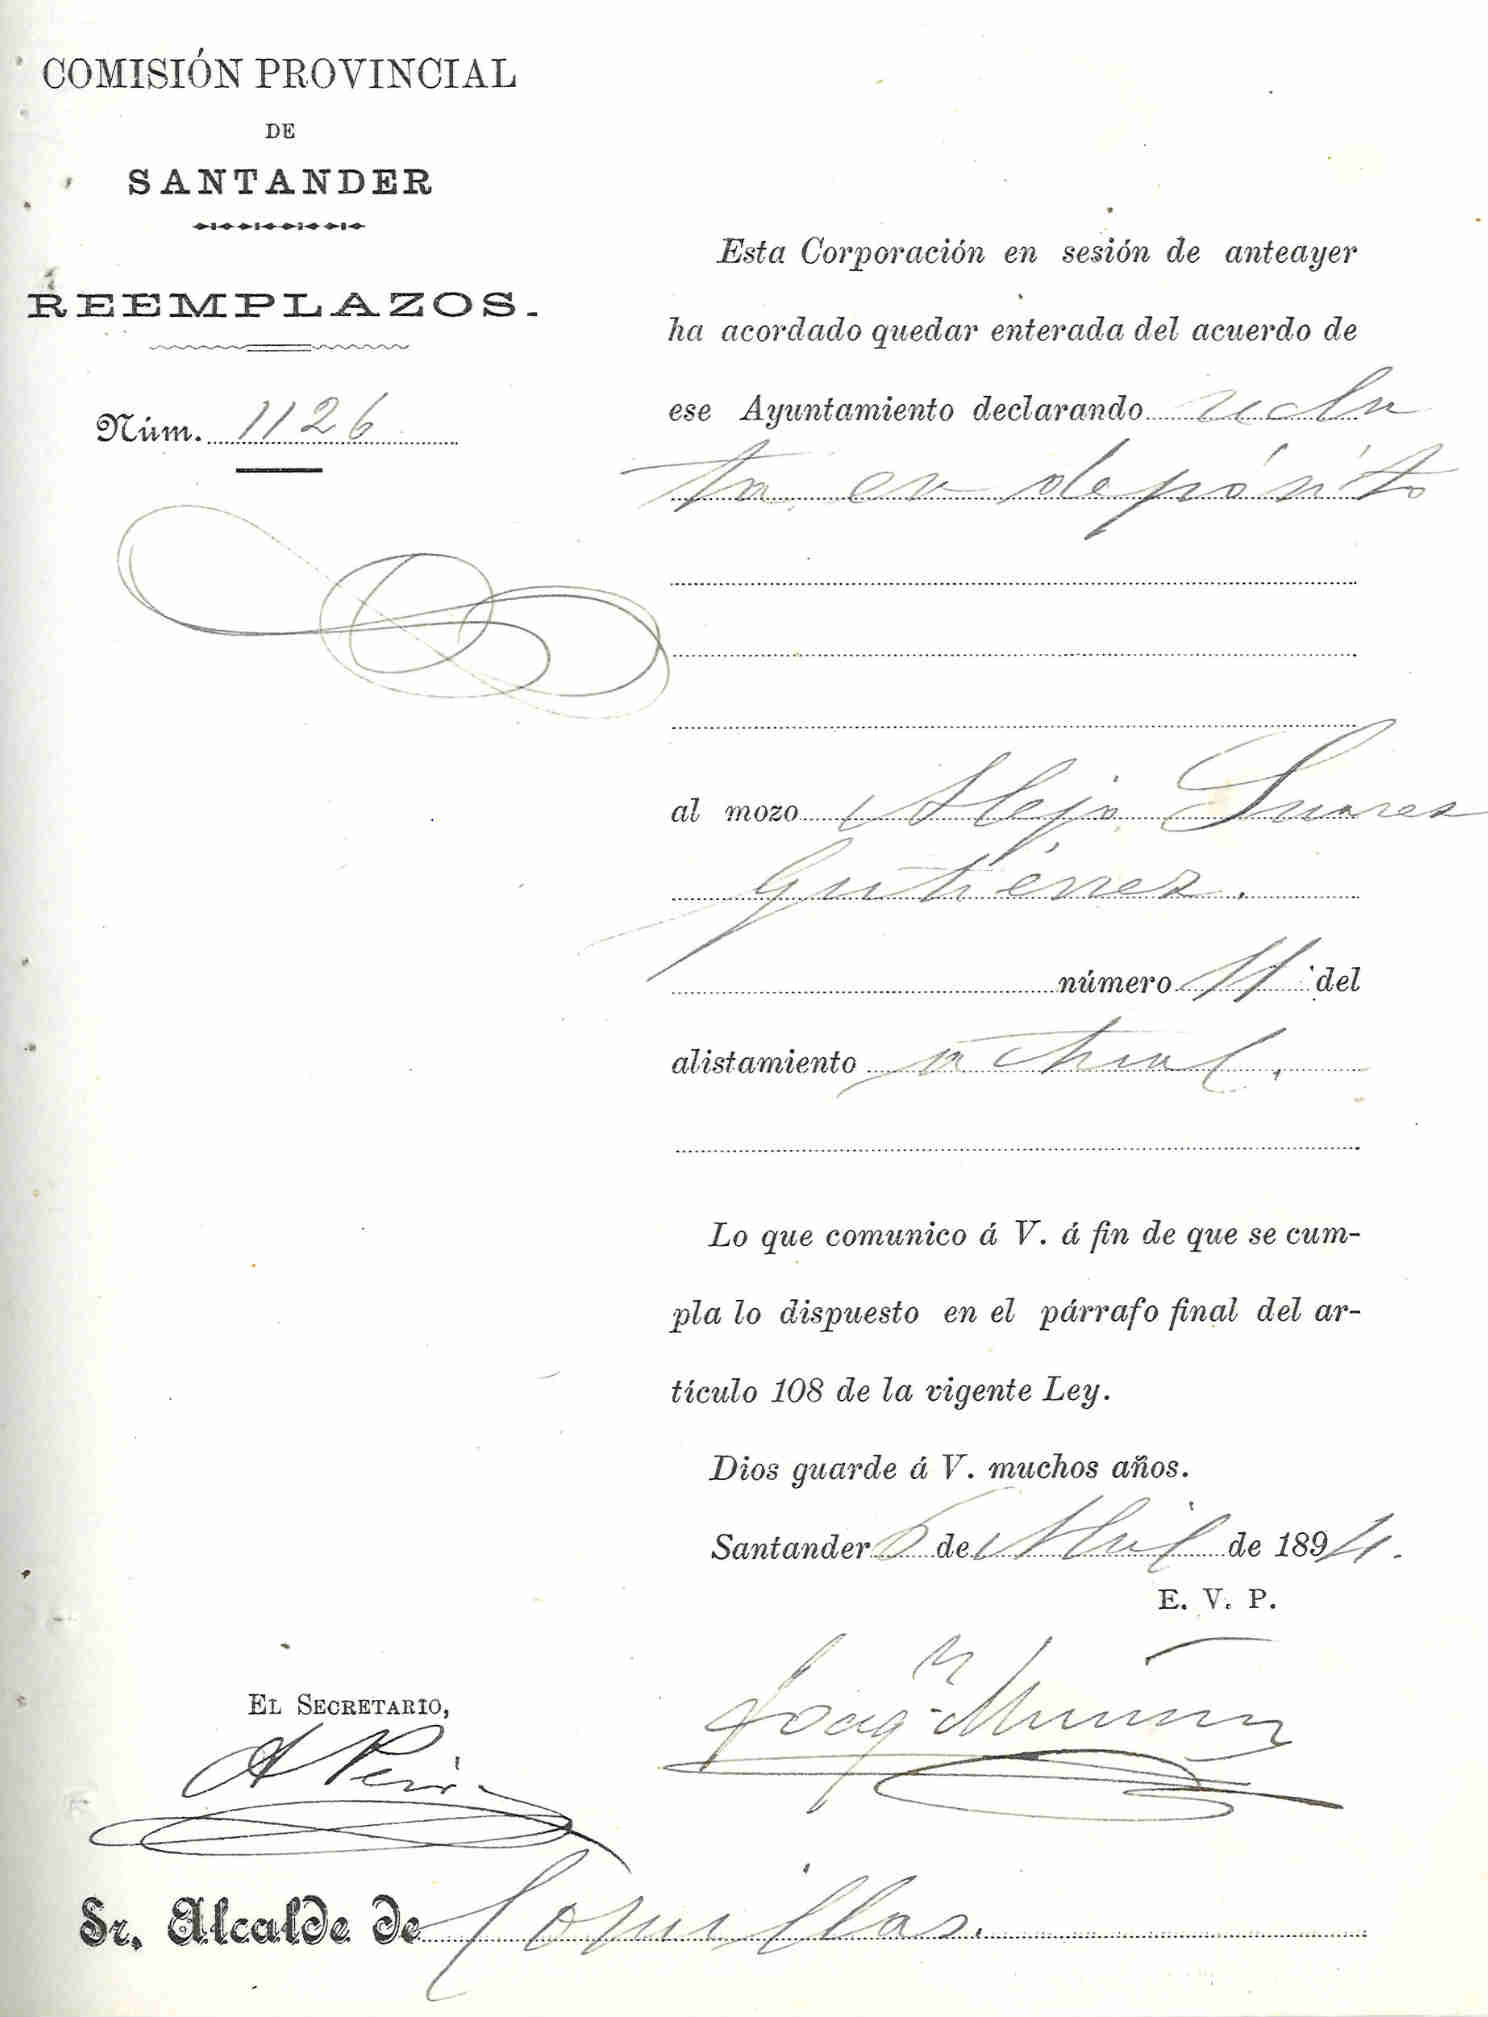 COMISIÓN PROVINCIAL
DE
SANTANDER
REEMPLAZOS.
Núm. 1126
Esta Corporación en sesión de anteayer
ha acordado quedar enterada del acuerdo de
ese Ayuntamiento declarando reclu
ta en depósito
al mozo Alejo Suarez
Gutiérrez.
número 11 del
alistamiento actual.
Lo que comunico á V. á fin de que se cum-
pla lo dispuesto en el párrafo final del ar-
tículo 108 de la vigente Ley.
Dios guarde á V. muchos años.
Santander 6 de Abril de 1894.
E. V. P.
EL SECRETARIO,
Sr. Alcalde de Comillas.